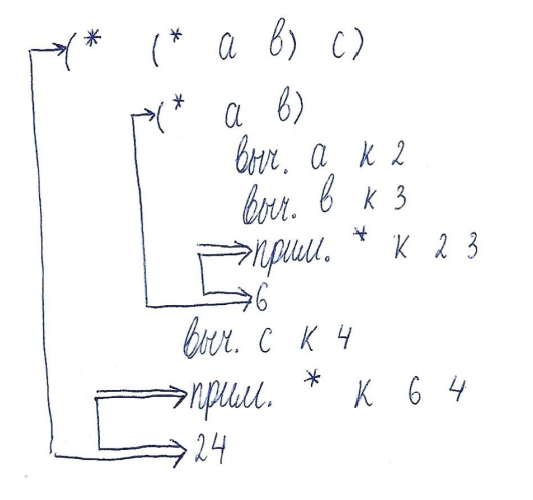 (* (* а в) с)
(* а в)
выч. а к 2
выч. в к 3
прим. * к 2 3
6
выч. с к 4
прим. * к 6 4
24